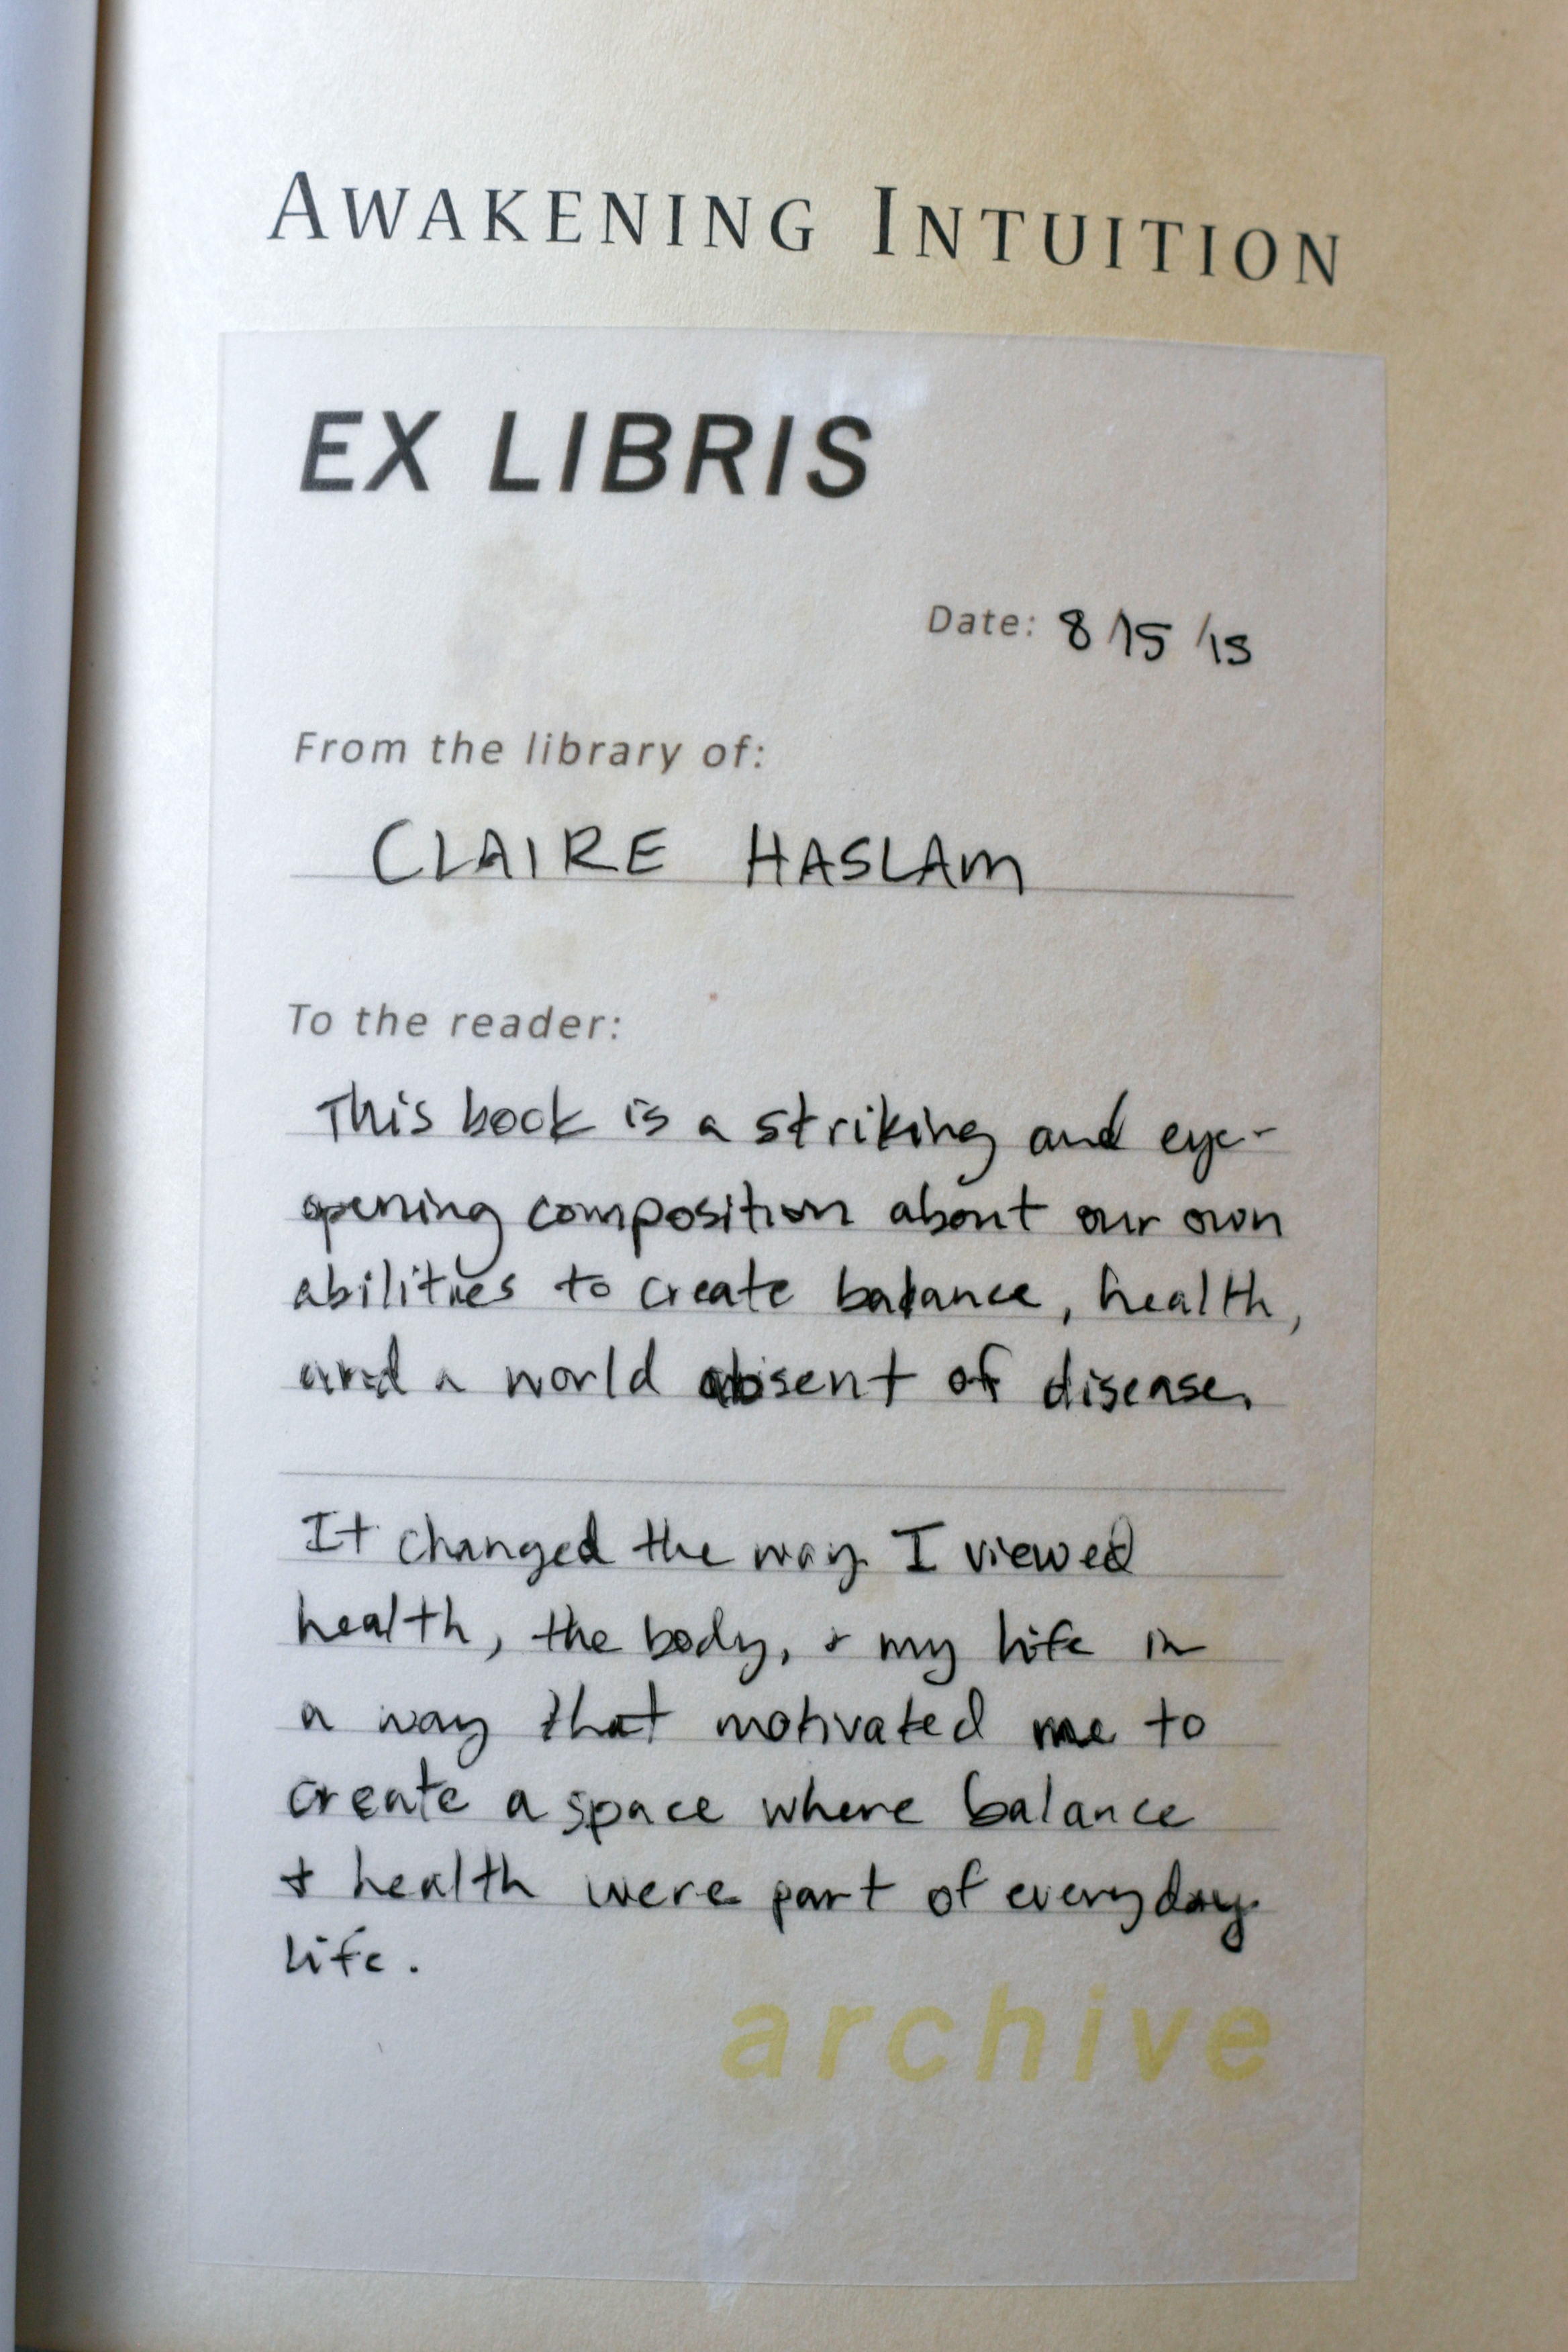 AWAKENING INTUITION
EX LIBRIS
Date: 8/15/13
From the library of:
CLAIRE HASLAM
To the reader:
This book is a striking and eye-
opening composition about our own
abilities to create balance, health,
and a world absent of disease.
It changed the way I viewed
health, the body, & my life in
a way that motivated me to
create a space where balance
& health were part of everyday
life.
archive